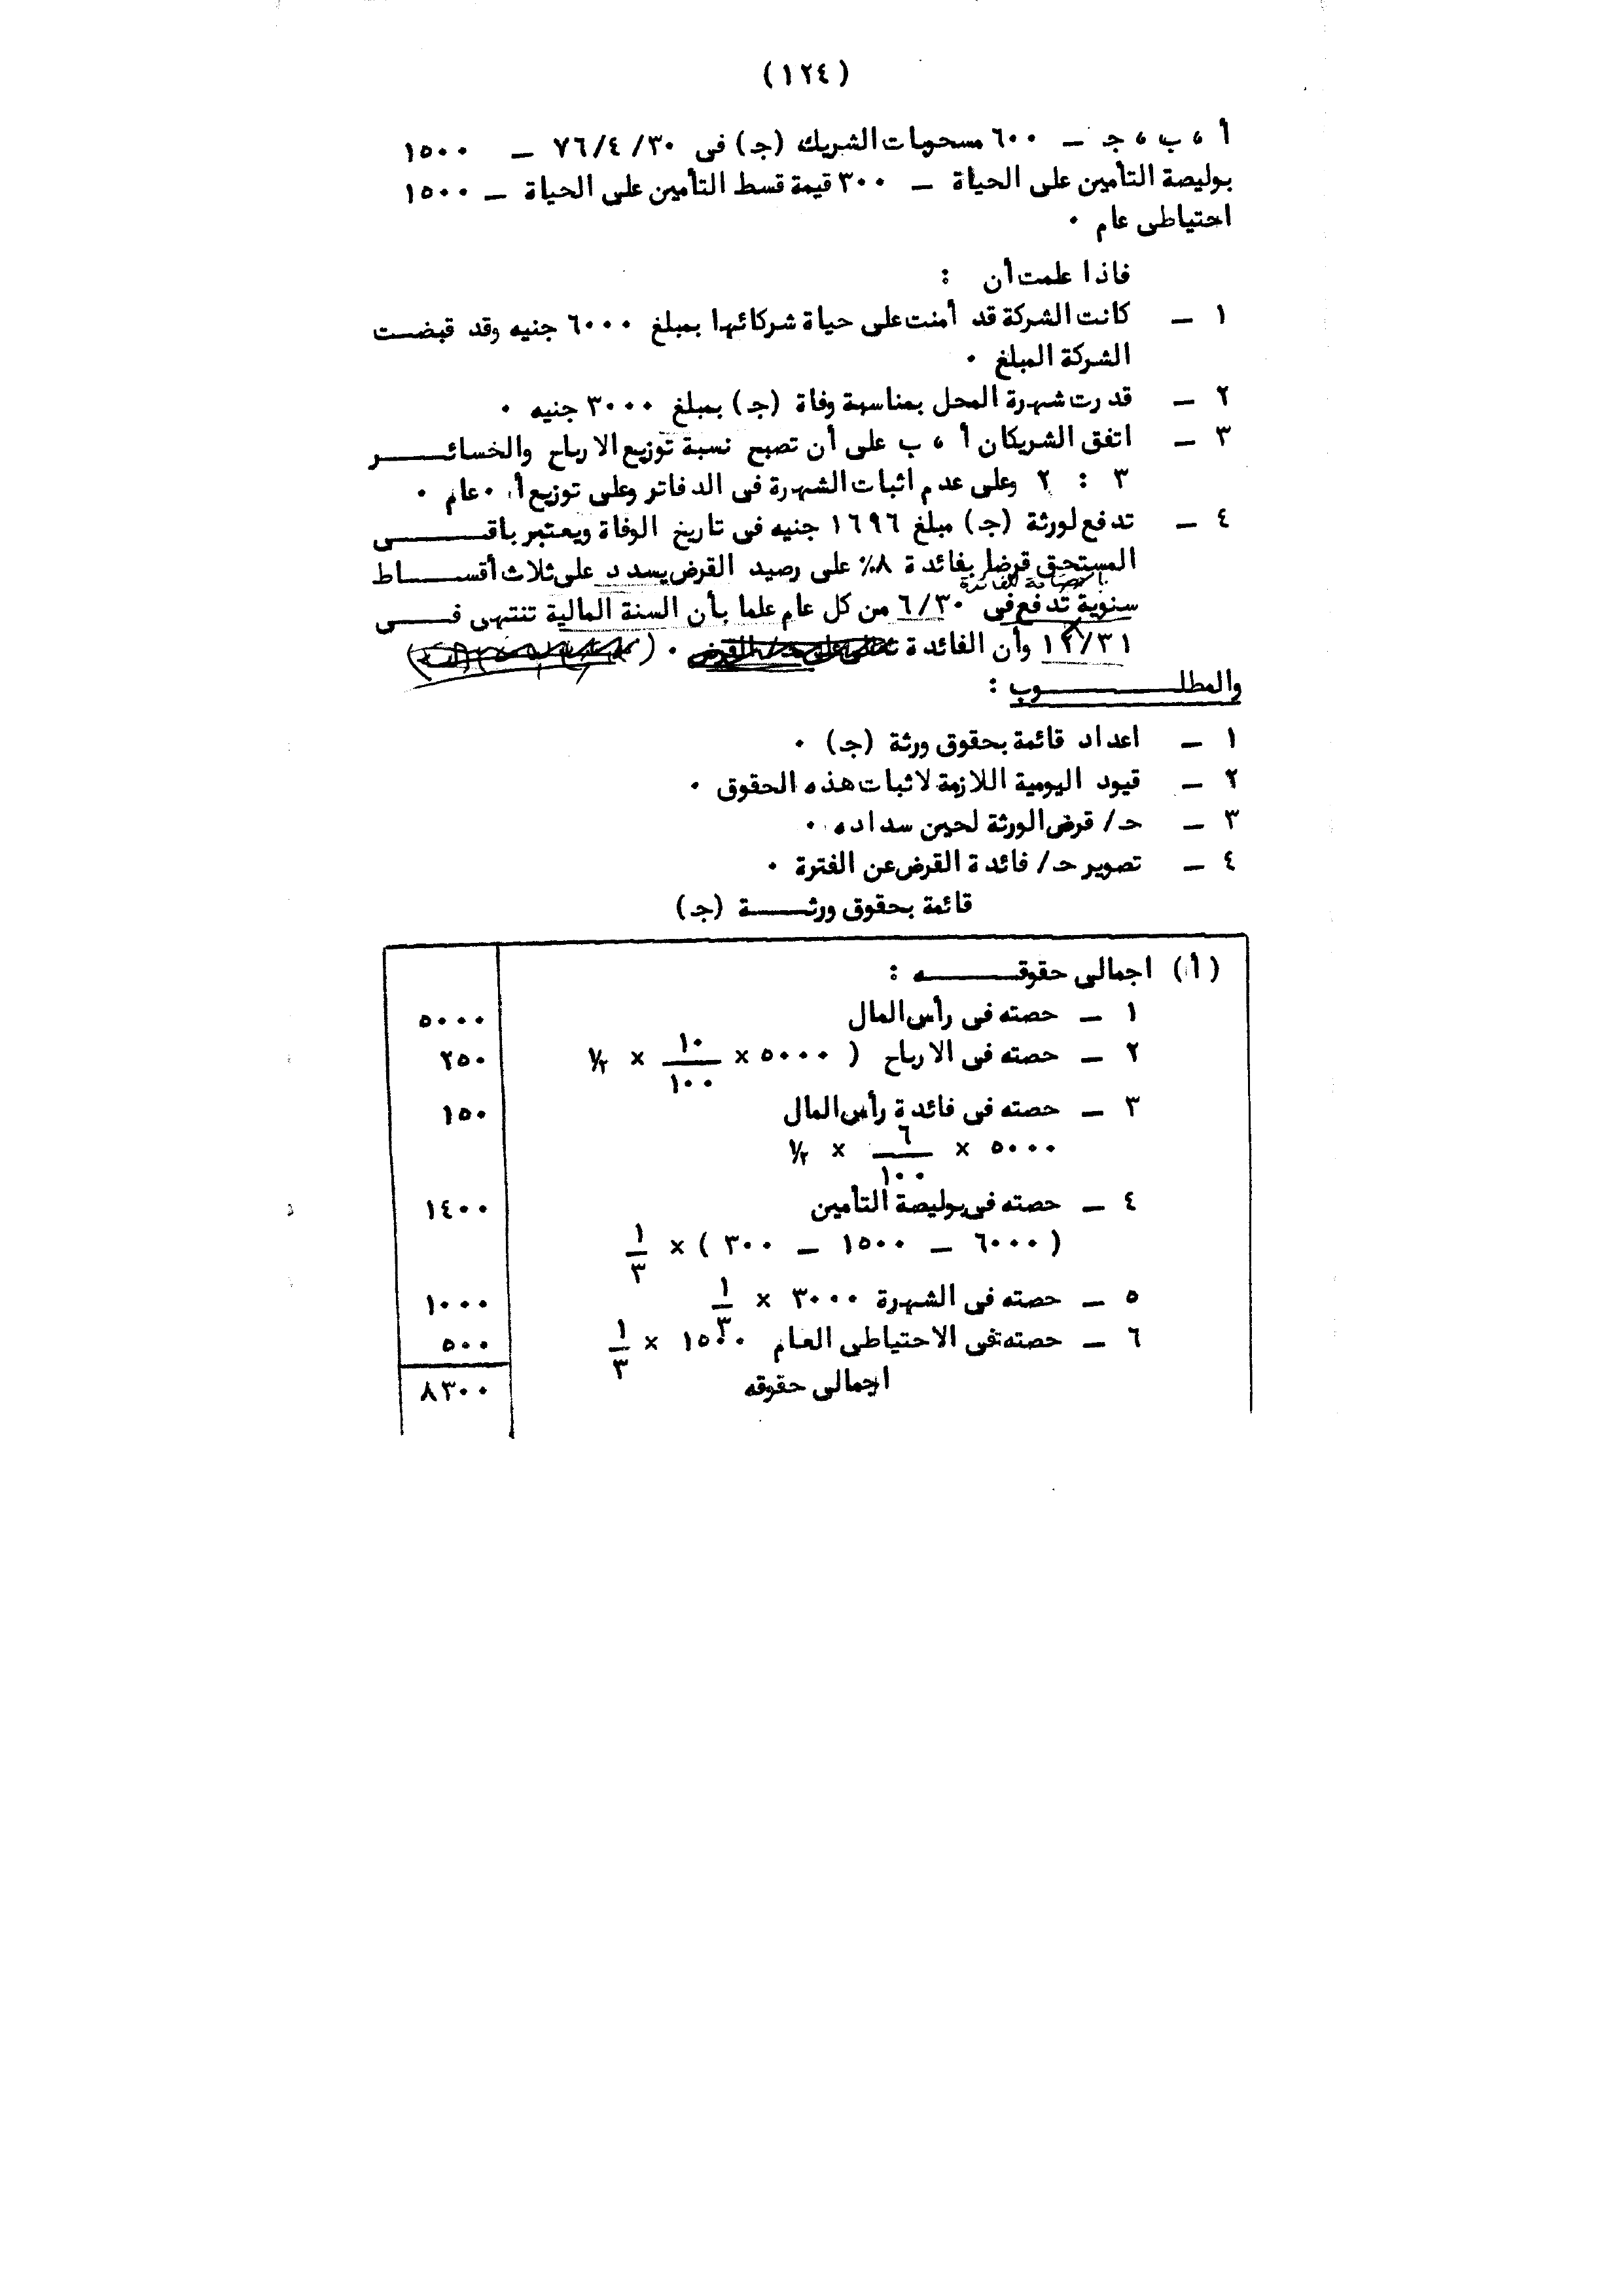 (١٢٤)
أ ، ب ، جـ ــ ٦٠٠ مسحوبات الشريك (جـ) فى ٣٠/٤/٧٦ ــ ١٥٠٠
بوليصة التأمين على الحياة ــ ٣٠٠ قيمة قسط التأمين على الحياة ــ ١٥٠٠
احتياطى عام ٠
فاذا علمت أن :
١ ــ كانت الشركة قد أمنت على حياة شركائها بمبلغ ٦٠٠٠ جنيه وقد قبضت
الشركة المبلغ ٠
٢ ــ قدرت شهرة المحل بمناسبة وفاة (جـ) بمبلغ ٣٠٠٠ جنيه ٠
٣ ــ اتفق الشريكان أ ، ب على أن تصبح نسبة توزيع الارباح والخسائر
٣ : ٢ وعلى عدم اثبات الشهرة فى الدفاتر وعلى توزيع أ٠ عام ٠
٤ ــ تدفع لورثة (جـ) مبلغ ١٦٩٦ جنيه فى تاريخ الوفاة ويعتبر باقى
المستحق قرضا بفائدة ٨٪ على رصيد القرض يسدد على ثلاث أقساط
سنوية تدفع فى ٦/٣٠ من كل عام علما بأن السنة المالية تنتهى فى
١٢/٣١ وأن الفائدة
والمطلوب :
١ ــ اعداد قائمة بحقوق ورثة (جـ) ٠
٢ ــ قيود اليومية اللازمة لاثبات هذه الحقوق ٠
٣ ــ حـ/ قرض الورثة لحين سداده ٠
٤ ــ تصوير حـ/ فائدة القرض عن الفترة ٠
قائمة بحقوق ورثة (جـ)
(أ) اجمالى حقوقه :
١ ــ حصته فى رأس المال ٥٠٠٠
٢ ــ حصته فى الارباح ( ٥٠٠٠ × ١٠/١٠٠ × ١/٢ ٢٥٠
٣ ــ حصته فى فائدة رأس المال ١٥٠
٥٠٠٠ × ٦/١٠٠ × ١/٢
٤ ــ حصته فى بوليصة التأمين ١٤٠٠
( ٦٠٠٠ ــ ١٥٠٠ ــ ٣٠٠ ) × ١/٣
٥ ــ حصته فى الشهرة ٣٠٠٠ × ١/٣ ١٠٠٠
٦ ــ حصته فى الاحتياطى العام ١٥٠٠ × ١/٣ ٥٠٠
اجمالى حقوقه ٨٣٠٠